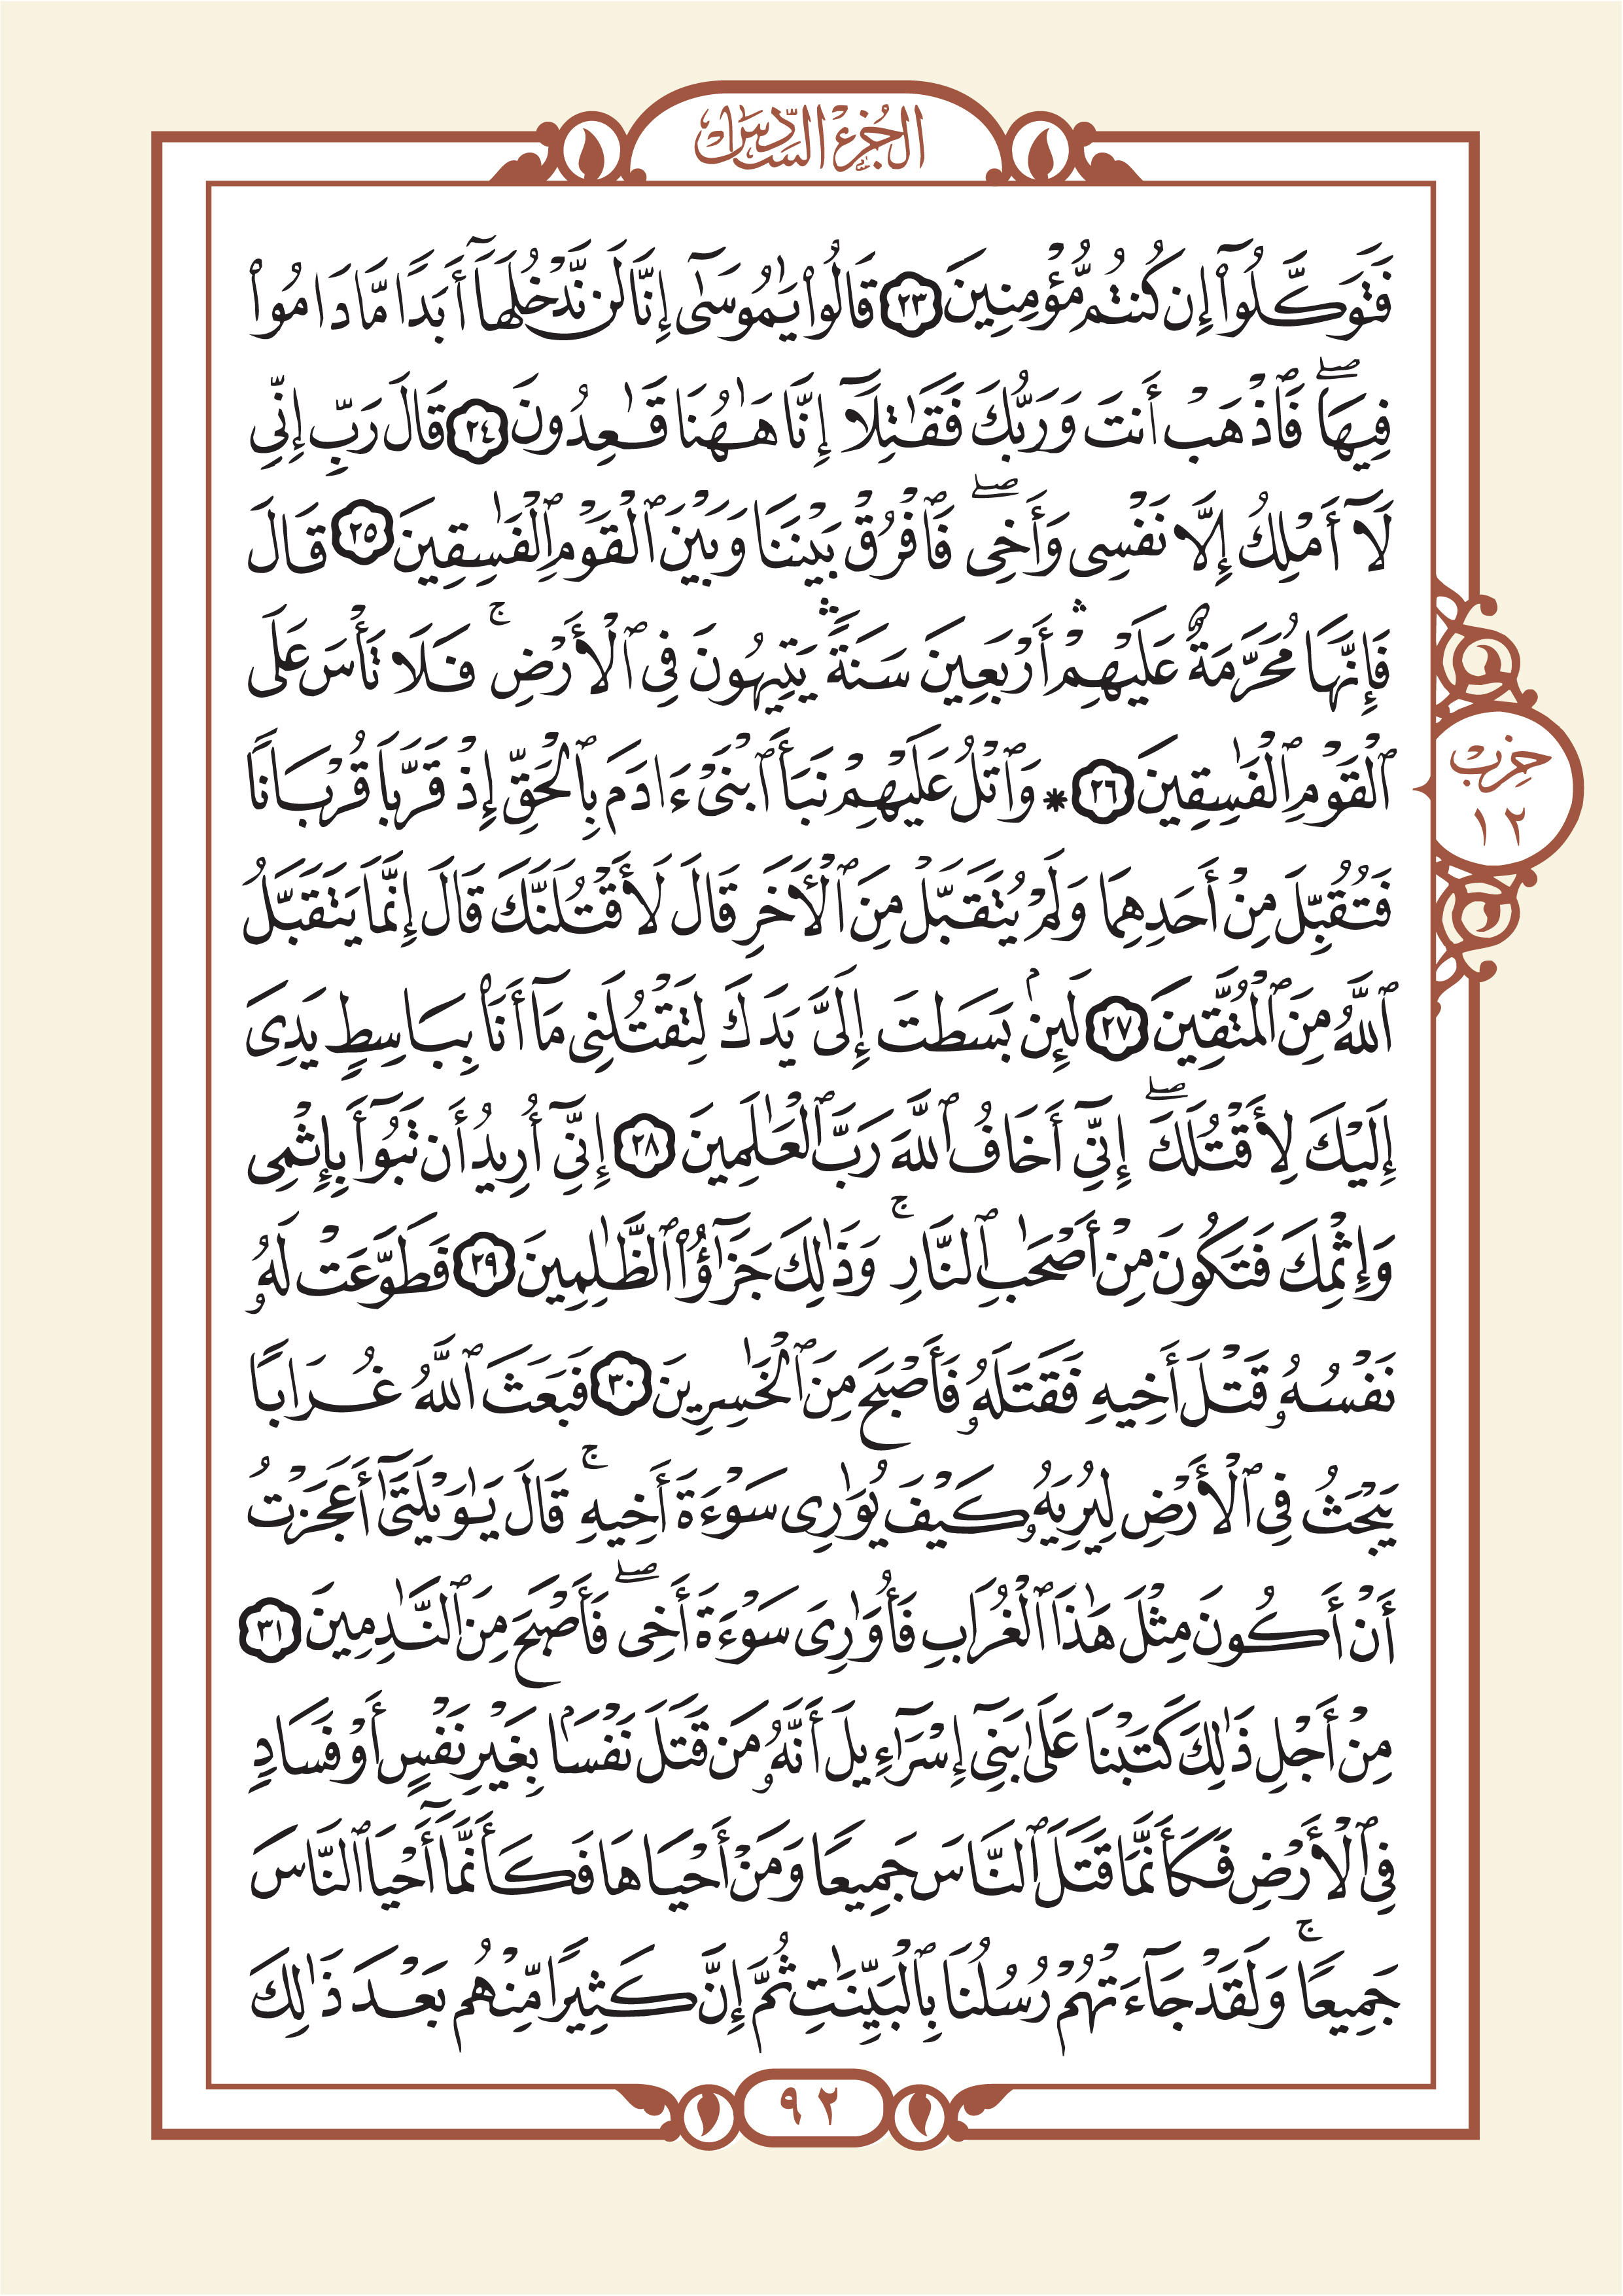 الجُزْءُ السَّادِسُ
فَتَوَكَّلُوٓا۟ إِن كُنتُم مُّؤْمِنِينَ ٢٣ قَالُوا۟ يَٰمُوسَىٰٓ إِنَّا لَن نَّدْخُلَهَآ أَبَدًا مَّا دَامُوا۟
فِيهَا ۖ فَٱذْهَبْ أَنتَ وَرَبُّكَ فَقَٰتِلَآ إِنَّا هَٰهُنَا قَٰعِدُونَ ٢٤ قَالَ رَبِّ إِنِّى
لَآ أَمْلِكُ إِلَّا نَفْسِى وَأَخِى ۖ فَٱفْرُقْ بَيْنَنَا وَبَيْنَ ٱلْقَوْمِ ٱلْفَٰسِقِينَ ٢٥ قَالَ
فَإِنَّهَا مُحَرَّمَةٌ عَلَيْهِمْ ۛ أَرْبَعِينَ سَنَةً ۛ يَتِيهُونَ فِى ٱلْأَرْضِ ۚ فَلَا تَأْسَ عَلَى
ٱلْقَوْمِ ٱلْفَٰسِقِينَ ٢٦ * وَٱتْلُ عَلَيْهِمْ نَبَأَ ٱبْنَىْ ءَادَمَ بِٱلْحَقِّ إِذْ قَرَّبَا قُرْبَانًا
حِزْب
١٢
فَتُقُبِّلَ مِنْ أَحَدِهِمَا وَلَمْ يُتَقَبَّلْ مِنَ ٱلْأَخَرِ قَالَ لَأَقْتُلَنَّكَ قَالَ إِنَّمَا يَتَقَبَّلُ
ٱللَّهُ مِنَ ٱلْمُتَّقِينَ ٢٧ لَئِنۢ بَسَطتَ إِلَىَّ يَدَكَ لِتَقْتُلَنِى مَآ أَنَا۠ بِبَاسِطٍ يَدِىَ
إِلَيْكَ لِأَقْتُلَكَ ۖ إِنِّىٓ أَخَافُ ٱللَّهَ رَبَّ ٱلْعَٰلَمِينَ ٢٨ إِنِّىٓ أُرِيدُ أَن تَبُوٓأَ بِإِثْمِى
وَإِثْمِكَ فَتَكُونَ مِنْ أَصْحَٰبِ ٱلنَّارِ ۚ وَذَٰلِكَ جَزَٰٓؤُا۟ ٱلظَّٰلِمِينَ ٢٩ فَطَوَّعَتْ لَهُۥ
نَفْسُهُۥ قَتْلَ أَخِيهِ فَقَتَلَهُۥ فَأَصْبَحَ مِنَ ٱلْخَٰسِرِينَ ٣٠ فَبَعَثَ ٱللَّهُ غُرَابًا
يَبْحَثُ فِى ٱلْأَرْضِ لِيُرِيَهُۥ كَيْفَ يُوَٰرِى سَوْءَةَ أَخِيهِ ۚ قَالَ يَٰوَيْلَتَىٰٓ أَعَجَزْتُ
أَنْ أَكُونَ مِثْلَ هَٰذَا ٱلْغُرَابِ فَأُوَٰرِىَ سَوْءَةَ أَخِى ۖ فَأَصْبَحَ مِنَ ٱلنَّٰدِمِينَ ٣١
مِنْ أَجْلِ ذَٰلِكَ كَتَبْنَا عَلَىٰ بَنِىٓ إِسْرَٰٓءِيلَ أَنَّهُۥ مَن قَتَلَ نَفْسًۢا بِغَيْرِ نَفْسٍ أَوْ فَسَادٍ
فِى ٱلْأَرْضِ فَكَأَنَّمَا قَتَلَ ٱلنَّاسَ جَمِيعًا وَمَنْ أَحْيَاهَا فَكَأَنَّمَآ أَحْيَا ٱلنَّاسَ
جَمِيعًا ۚ وَلَقَدْ جَآءَتْهُمْ رُسُلُنَا بِٱلْبَيِّنَٰتِ ثُمَّ إِنَّ كَثِيرًا مِّنْهُم بَعْدَ ذَٰلِكَ
٩٢